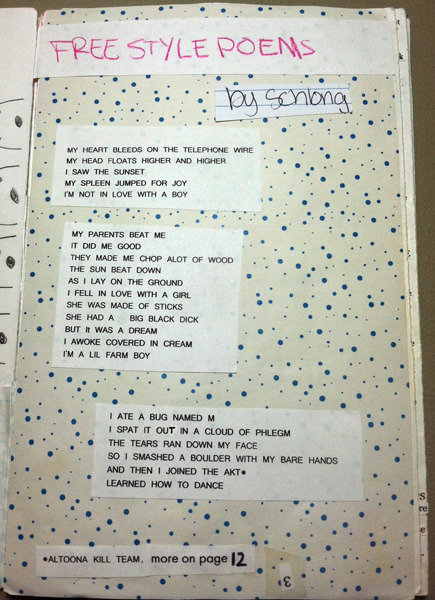 FREE STYLE POEMS
by schlong
MY HEART BLEEDS ON THE TELEPHONE WIRE
MY HEAD FLOATS HIGHER AND HIGHER
I SAW THE SUNSET
MY SPLEEN JUMPED FOR JOY
I'M NOT IN LOVE WITH A BOY
MY PARENTS BEAT ME
IT DID ME GOOD
THEY MADE ME CHOP ALOT OF WOOD
THE SUN BEAT DOWN
AS I LAY ON THE GROUND
I FELL IN LOVE WITH A GIRL
SHE WAS MADE OF STICKS
SHE HAD A BIG BLACK DICK
BUT It WAS A DREAM
I AWOKE COVERED IN CREAM
I'M A LIL FARM BOY
I ATE A BUG NAMED M
I SPAT IT OUT IN A CLOUD OF PHLEGM
THE TEARS RAN DOWN MY FACE
SO I SMASHED A BOULDER WITH MY BARE HANDS
AND THEN I JOINED THE AKT*
LEARNED HOW TO DANCE
*ALTOONA KILL TEAM, more on page 12
3